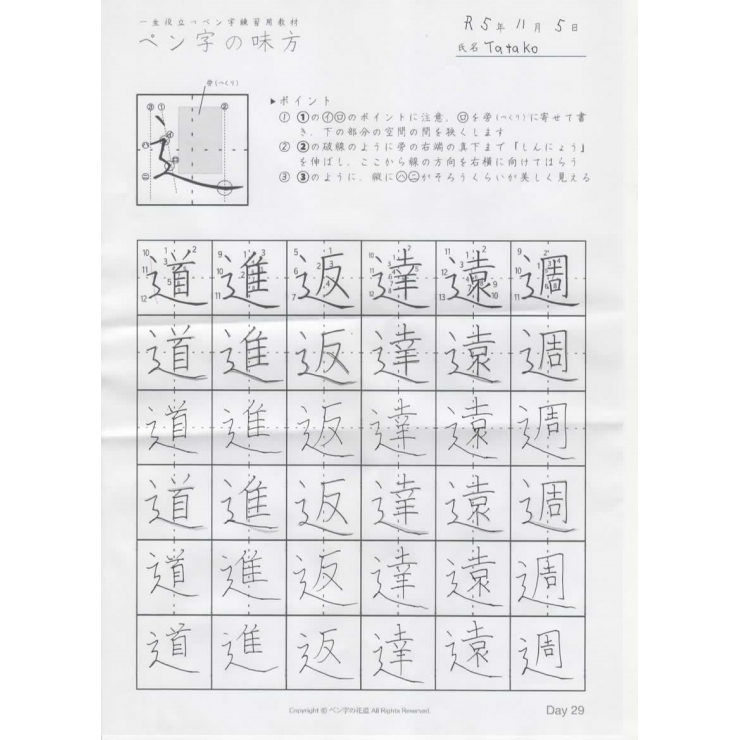 一生役立つペン字練習用教材
ペン字の味方
R5年11月5日
氏名 Tatako
旁(つくり)
③ ① ②
▶ポイント
① ❶の㋑㋺のポイントに注意。㋺を旁(つくり)に寄せて書
き、下の部分の空間の間を狭くします
② ❷の破線のように旁の右端の真下まで『しんにょう』
を伸ばし、ここから線の方向を右横に向けてはらう
③ ❸のように、縦に㋩㋥がそろうくらいが美しく見える
道 進 返 達 遠 週
道 進 返 達 遠 週
道 進 返 達 遠 週
道 進 返 達 遠 週
道 進 返 達 遠 週
道 進 返 達 遠 週
Copyright © ペン字の花道 All Rights Reserved.
Day 29